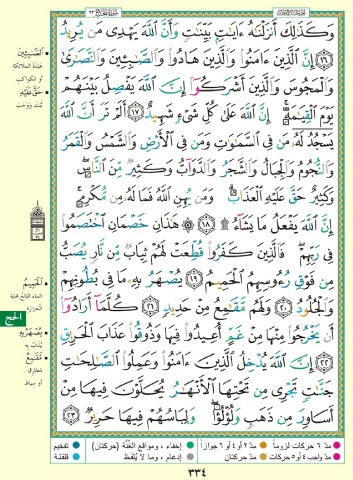 وَكَذَٰلِكَ أَنزَلْنَاهُ ءَايَاتٍ بَيِّنَاتٍ وَأَنَّ ٱللَّهَ يَهْدِى مَن يُرِيدُ
١٦ إِنَّ ٱلَّذِينَ ءَامَنُوا۟ وَٱلَّذِينَ هَادُوا۟ وَٱلصَّٰبِـِٔينَ وَٱلنَّصَارَىٰ
وَٱلْمَجُوسَ وَٱلَّذِينَ أَشْرَكُوٓا۟ إِنَّ ٱللَّهَ يَفْصِلُ بَيْنَهُمْ
يَوْمَ ٱلْقِيَامَةِ إِنَّ ٱللَّهَ عَلَىٰ كُلِّ شَىْءٍ شَهِيدٌ ١٧ أَلَمْ تَرَ أَنَّ ٱللَّهَ
يَسْجُدُ لَهُۥ مَن فِى ٱلسَّمَٰوَٰتِ وَمَن فِى ٱلْأَرْضِ وَٱلشَّمْسُ وَٱلْقَمَرُ
وَٱلنُّجُومُ وَٱلْجِبَالُ وَٱلشَّجَرُ وَٱلدَّوَآبُّ وَكَثِيرٌ مِّنَ ٱلنَّاسِ
وَكَثِيرٌ حَقَّ عَلَيْهِ ٱلْعَذَابُ وَمَن يُهِنِ ٱللَّهُ فَمَا لَهُۥ مِن مُّكْرِمٍ
إِنَّ ٱللَّهَ يَفْعَلُ مَا يَشَآءُ ۩ ١٨ هَٰذَانِ خَصْمَانِ ٱخْتَصَمُوا۟
فِى رَبِّهِمْ فَٱلَّذِينَ كَفَرُوا۟ قُطِّعَتْ لَهُمْ ثِيَابٌ مِّن نَّارٍ يُصَبُّ
مِن فَوْقِ رُءُوسِهِمُ ٱلْحَمِيمُ ١٩ يُصْهَرُ بِهِۦ مَا فِى بُطُونِهِمْ
وَٱلْجُلُودُ ٢٠ وَلَهُم مَّقَٰمِعُ مِنْ حَدِيدٍ ٢١ كُلَّمَآ أَرَادُوٓا۟
أَن يَخْرُجُوا۟ مِنْهَا مِنْ غَمٍّ أُعِيدُوا۟ فِيهَا وَذُوقُوا۟ عَذَابَ ٱلْحَرِيقِ
٢٢ إِنَّ ٱللَّهَ يُدْخِلُ ٱلَّذِينَ ءَامَنُوا۟ وَعَمِلُوا۟ ٱلصَّٰلِحَٰتِ
جَنَّٰتٍ تَجْرِى مِن تَحْتِهَا ٱلْأَنْهَٰرُ يُحَلَّوْنَ فِيهَا مِنْ
أَسَاوِرَ مِن ذَهَبٍ وَلُؤْلُؤًا وَلِبَاسُهُمْ فِيهَا حَرِيرٌ ٢٣
الصَّابِئِينَ
عَبَدَةَ الملائكة
أو الكواكب
حَقَّ عَلَيْهِ
ثَبَتَ وَوَجَبَ
الْحَمِيمُ
الماء البالغ نهاية
الحرارة
الحج
يُصْهَرُ بِهِ
يُذَابُ بِهِ
مَقَامِعُ
مطارق
أو سياط
مدّ ٦ حركات لزوماً مدّ ٢ أو ٤ أو ٦ جوازاً إخفاء، ومواقع الغُنَّة (حركتان) تفخيم
مدّ واجب ٤ أو ٥ حركات مدّ حركتان إدغام، وما لا يُلفَظ قلقلة
٣٣٤